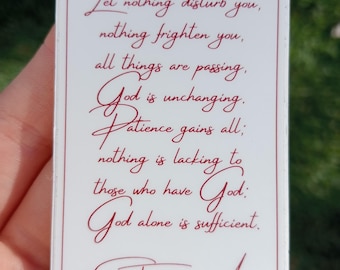 Let nothing disturb you,
nothing frighten you,
all things are passing,
God is unchanging.
Patience gains all;
nothing is lacking to
those who have God:
God alone is sufficient.